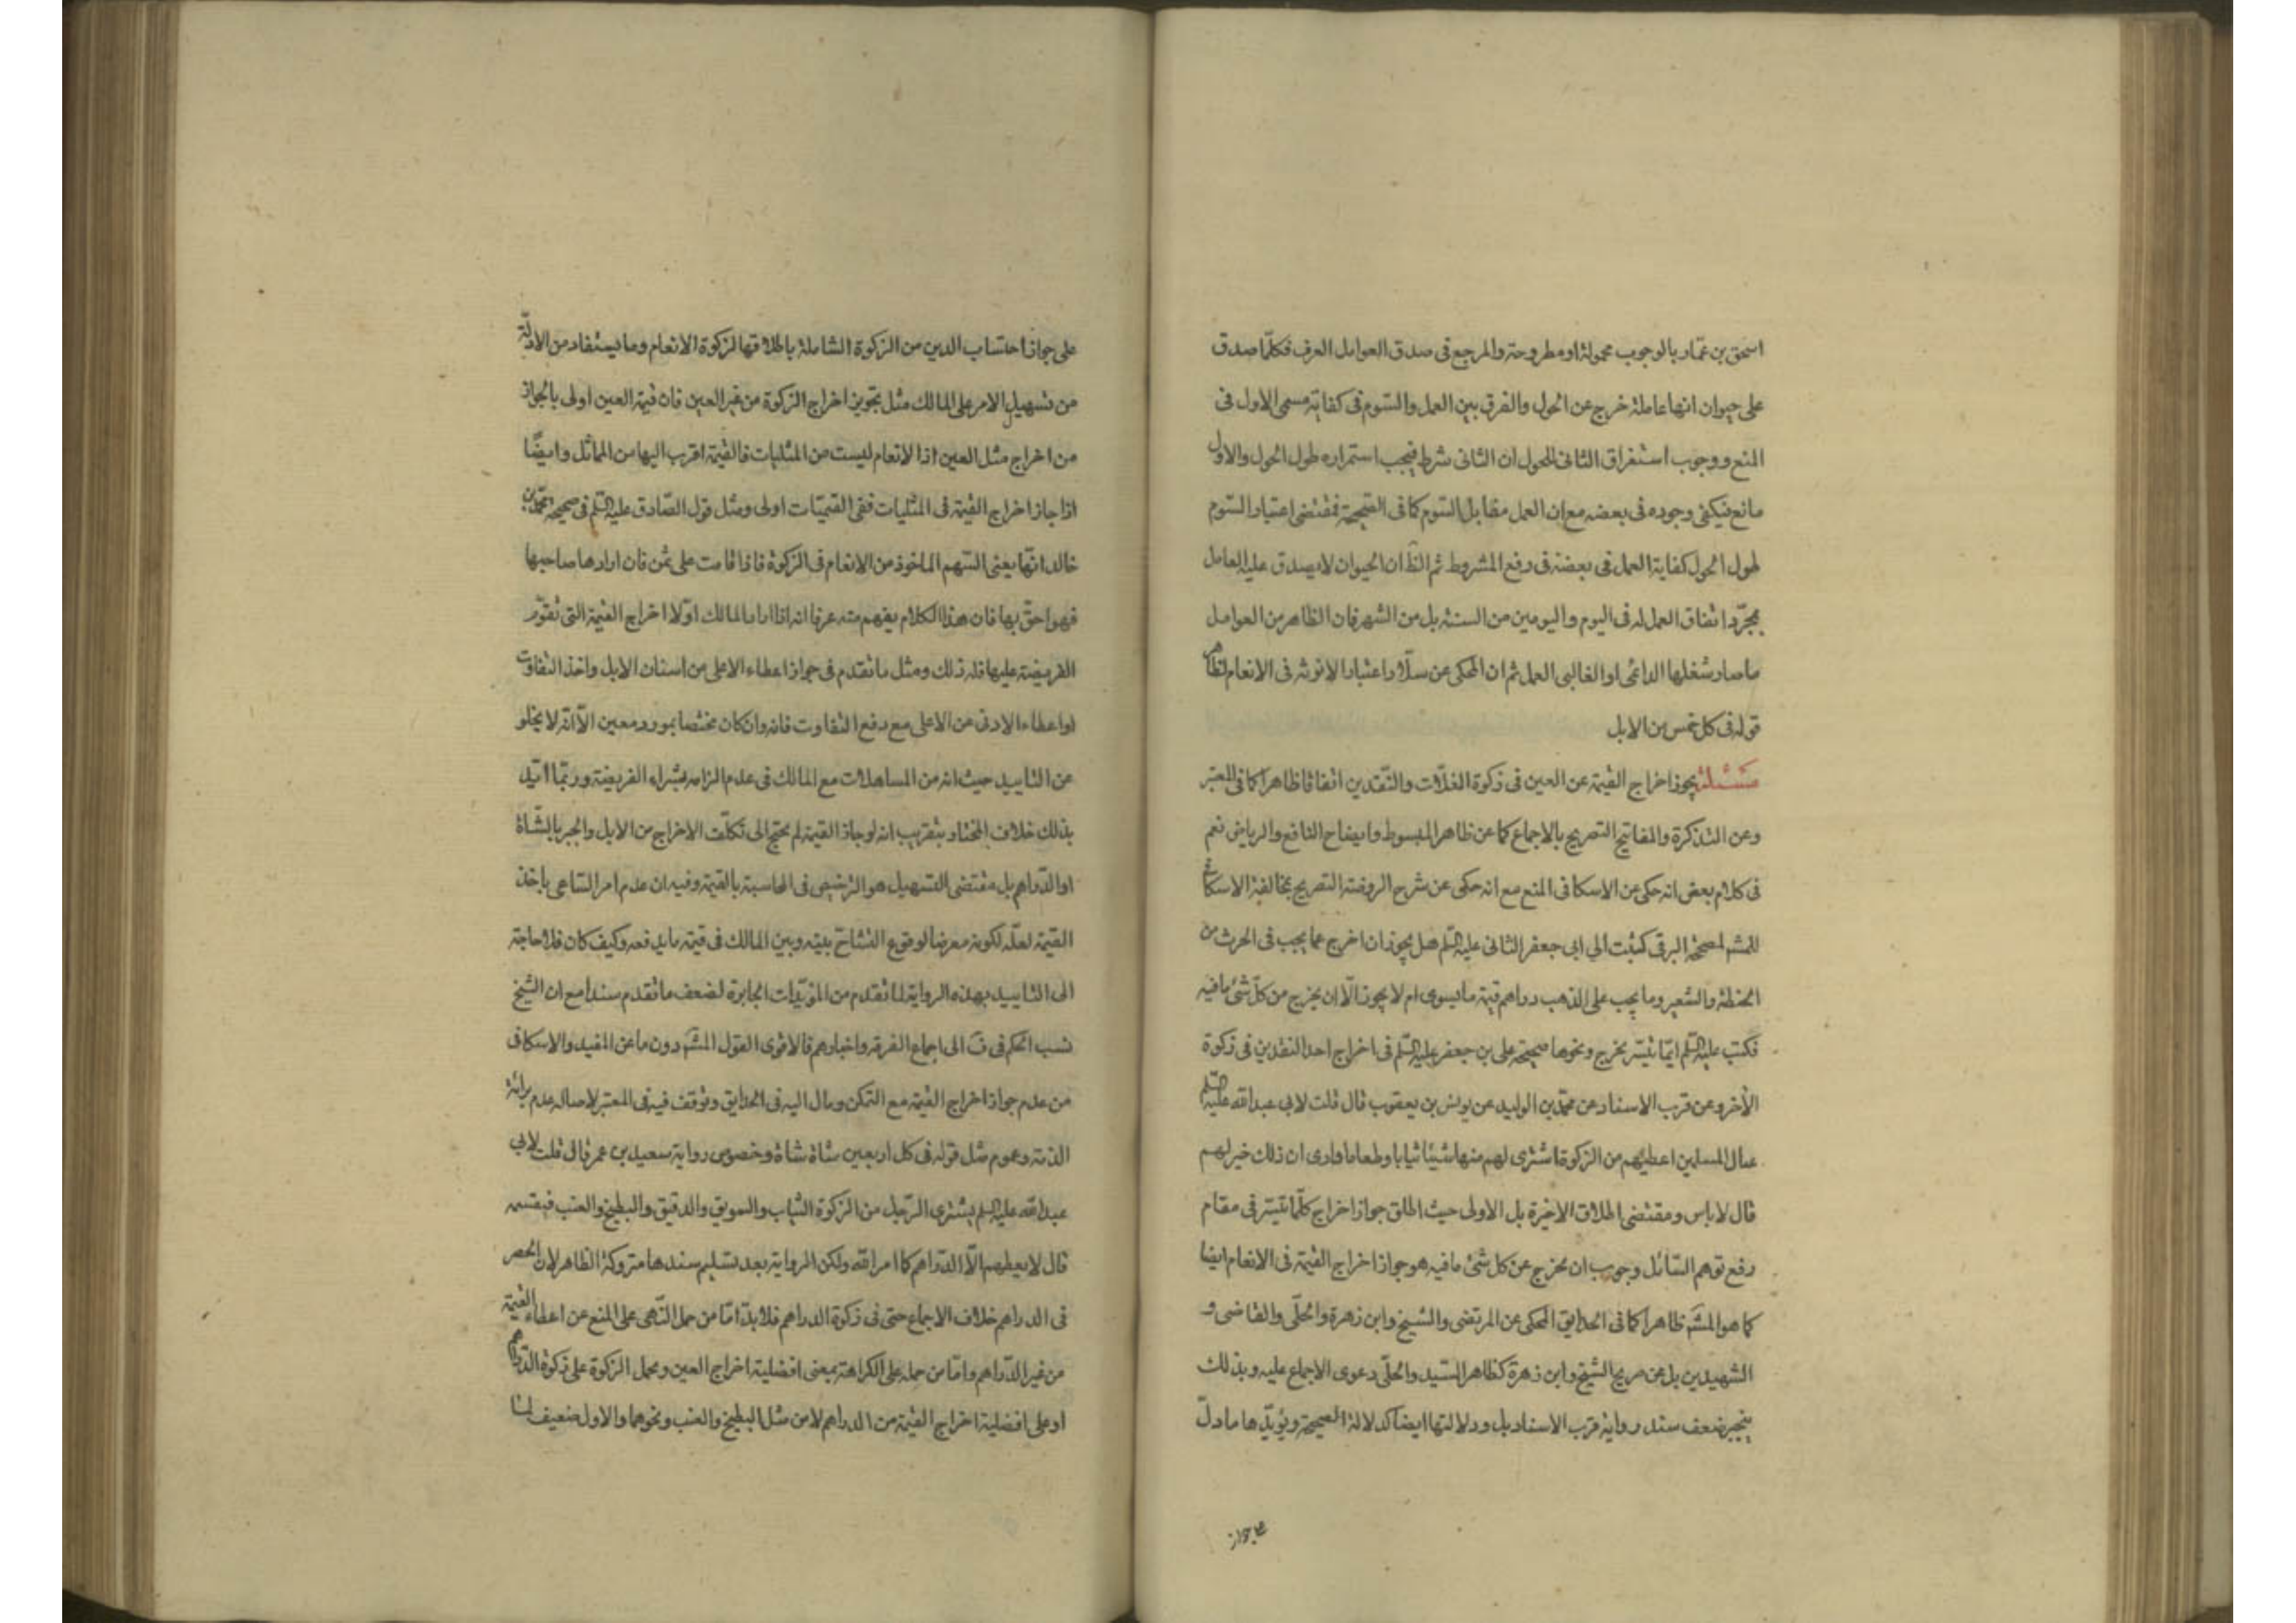 اسحق بن عمّار بالوجوب محمولة او مطروحة والمرجع فى صدق العوامل العرف فكلّما صدق
على حيوان انها عاملة خرج عن الحول والفرق بين العمل والسّوم فى كفاية مسمى الاول فى
المنع ووجوب استغراق الثانى للحول ان الثانى شرط فيجب استمراره طول الحول والاول
مانع فيكفى وجوده فى بعضه مع ان العمل مقابل السّوم كما فى الصّحيحة فمقتضى اعتبار السّوم
طول الحول كفاية العمل فى بعضه فى رفع المشروط ثم الظّ ان الحيوان لا يصدق عليه العامل
بمجرّد اتفاق العمل له فى اليوم واليومين من السنة بل من الشهر فان الظاهر من العوامل
ما صار شغلها الدائمى او الغالبى العمل ثم ان المحكى عن سلّار اعتبار الانوثة فى الانعام لظاهر
قوله فى كل خمس من الابل
مسئلة يجوز اخراج القيمة عن العين فى زكوة الغلّات والنّقدين اتفاقا ظاهرا كما فى المعتبر
وعن التذكرة والمفاتيح التصريح بالاجماع كما عن ظاهر المبسوط وايضاح النافع والرياض نعم
فى كلام بعض انه حكى عن الاسكافى المنع مع انه حكى عن شرح الروضة التصريح بمخالفة الاسكافى
للمشهـ لصحيحة البرقى كتبت الى ابى جعفر الثانى عليه السّلم هل يجوز ان اخرج عما يجب فى الحرث من
الحنطة والشعير وما يجب على الذهب دراهم قيمة ما يسوى ام لا يجوز الّا ان يخرج من كلّ شئ ما فيه
فكتب عليه السّلم ايّما تيسّر يخرج ونحوها صحيحة على بن جعفر عليه السّلم فى اخراج احد النقدين فى زكوة
الاخر وعن قرب الاسناد عن محمّد بن الوليد عن يونس بن يعقوب قال قلت لابى عبد الله عليه السّلم
عيال المسلمين اعطيهم من الزكوة اشترى لهم منها شيئا ثيابا وطعاما وارى ان ذلك خير لهم
قال لا باس ومقتضى اطلاق الاخيرة بل الاولى حيث اطلق جواز اخراج كلّما تيسّر فى مقام
رفع توهم السّائل وجوب ان يخرج عن كل شئ ما فيه هو جواز اخراج القيمة فى الانعام ايضا
كما هو المشهـ ظاهرا كما فى الحدايق المحكى عن المرتضى والشيخ وابن زهرة والحلّى والقاضى و
الشهيدين بل عن صريح الشيخ وابن زهرة كظاهر السّيد والحلّى دعوى الاجماع عليه وبذلك
ينجبر ضعف سند رواية قرب الاسناد بل ودلالتها ايضا كدلالة الصحيحة ويؤيّدها ما دلّ
على جواز
على جواز احتساب الدين من الزكوة الشاملة باطلاقها لزكوة الانعام وما يستفاد من الادلّة
من تسهيل الامر على المالك مثل تجويز اخراج الزكوة من غير العين فان قيمة العين اولى بالجواز
من اخراج مثل العين اذ الانعام ليست من المثليات فالقيمة اقرب اليها من المماثل وايضًا
اذا جاز اخراج القيمة فى المثليات ففى القيميّات اولى ومثل قول الصّادق عليه السّلم فى صحيحة محمّد بن
خالد انّها يعنى السّهم الماخوذ من الانعام فى الزكوة فاذا قامت على ثمن فان ارادها صاحبها
فهو احقّ بها فان هذا الكلام يفهم منه عرفا انه اذا اراد المالك اوّلا اخراج القيمة التى تقوّم
الفريضة عليها فله ذلك ومثل ما تقدم فى جواز اعطاء الاعلى من اسنان الابل واخذ التفاوت
او اعطاء الادنى عن الاعلى مع دفع التفاوت فانه وان كان مختصا بمورد معين الّا انّه لا يخلو
عن التاييد حيث انه من المساهلات مع المالك فى عدم الزامه بشراء الفريضة وربّما ايّد
بذلك خلاف المختار بتقريب انه لو جاز القيمة لم يحتج الى تكلّف الاخراج من الابل والجبر بالشّاة
او الدّراهم بل مقتضى التسهيل هو الترخيص فى المحاسبة بالقيمة وفيه ان عدم امر السّاعى باخذ
القيمة لعلّه لكونه معرضا لوقوع التشاحّ بينه وبين المالك فى قيمة ما يدفعه وكيف كان فلا حاجة
الى التاييد بهذه الرواية لما تقدم من المؤيّدات الجابرة لضعف ما تقدم سندا مع ان الشّيخ
نسب الحكم فى ف الى اجماع الفرقة واخبارهم فالاقوى القول المشهـ دون ما عن المفيد والاسكافى
من عدم جواز اخراج القيمة مع التمكن ومال اليه فى الحدايق وتوقف فيه فى المعتبر لاصالة عدم برائة
الذمّة وعموم مثل قوله فى كل اربعين شاة شاة وخصوص رواية سعيد بن عمر قال قلت لابى
عبد الله عليه السّلم يشترى الرّجل من الزكوة الثياب والسويق والدقيق والبطيخ والعنب فيقسمه
قال لا يعطيهم الّا الدّراهم كما امر الله ولكن الرواية بعد تسليم سندها متروكة الظاهر لان الحصر
فى الدراهم خلاف الاجماع حتى فى زكوة الدراهم فلا بدّ امّا من حمل النّهى على المنع عن اعطاء القيمة
من غير الدّراهم وامّا من حمله على الكراهة بمعنى افضلية اخراج العين ومحمل الزكوة على زكوة الدّراهم
او على افضلية اخراج القيمة من الدراهم لا من مثل البطيخ والعنب ونحوهما والاول ضعيف لما